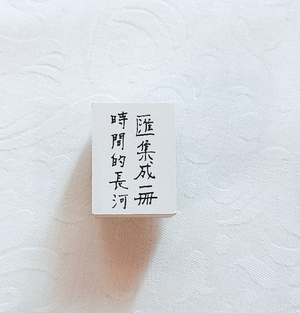 匯集成一冊
時間的長河